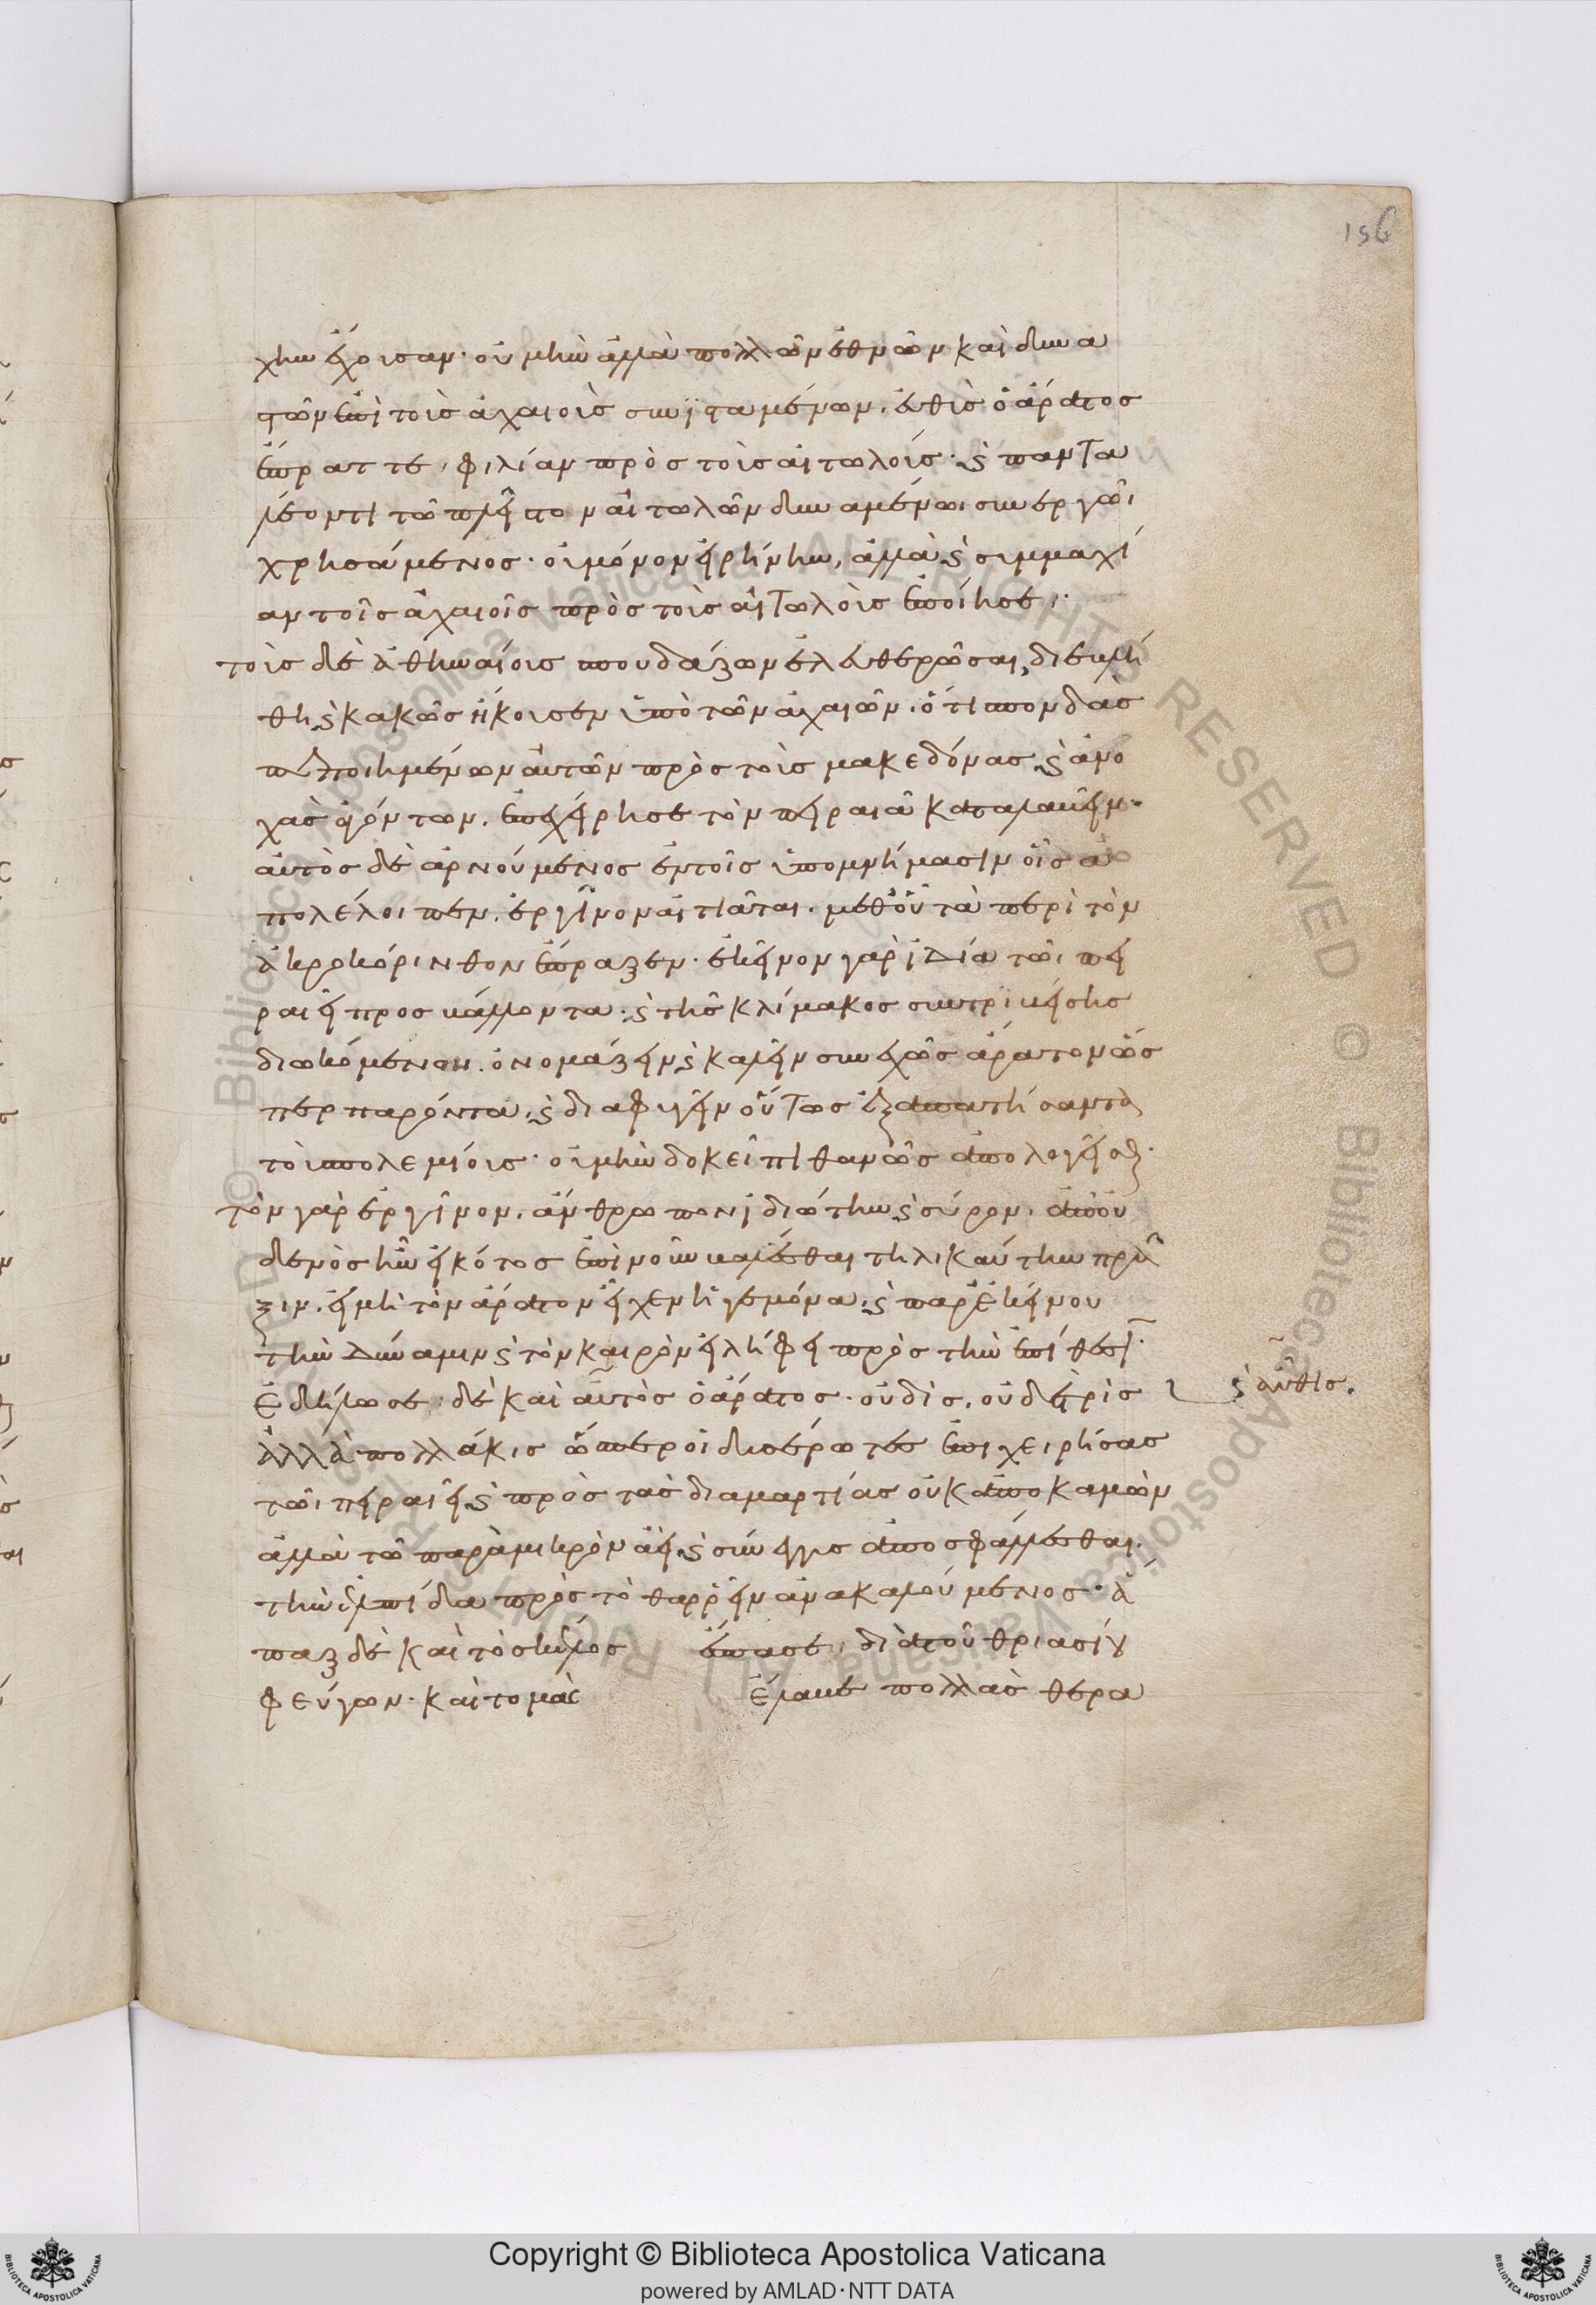 χὴν ἔχουσαν· οὐ μὴν ἀλλὰ πολλῶν ἐθνῶν καὶ δυνα
στῶν ἐπὶ τοὺς ἀχαιοὺς συνισταμένων, εὐθὺς ὁ ἄρατος
ἔπραττε, φιλίαν πρὸς τοὺς αἰτωλούς· καὶ παντα
λέοντι τῶ πλεῖστον αἰτωλῶν δυναμένωι συνεργῶι
χρησάμενος· οὐ μόνον εἰρήνην, ἀλλὰ καὶ συμμαχί
αν τοῖς ἀχαιοῖς πρὸς τοὺς αἰτωλοὺς ἐποίησε·
τοὺς δὲ ἀθηναίους σπουδάζων ἐλευθερῶσαι, διεβλή
θη καὶ κακῶς ἤκουσεν ὑπὸ τῶν ἀχαιῶν, ὅτι σπονδὰς
πεποιημένων αὐτῶν πρὸς τοὺς μακεδόνας καὶ ἀνο
χὰς ἀγόντων, ἐπεχείρησε τὸν πειραιᾶ καταλαβεῖν·
αὐτὸς δὲ ἀρνούμενος ἐν τοῖς ὑπομνήμασιν οἷς ἀ
πολέλοιπεν, ἐργῖνον αἰτιᾶται· μεθ' οὗ τὰ περὶ τὸν
ἀκροκόρινθον ἔπραξεν· ἐκεῖνον γὰρ ἰδία τῶι πει
ραιεῖ προσβάλλοντα· καὶ τῆς κλίμακος συντριβείσης
διωκόμενον, ὀνομάζειν καὶ καλεῖν συνεχῶς ἄρατον ὥς
περ παρόντα, καὶ διαφυγεῖν οὕτως ἐξαπατήσαντα
τοὺς πολεμίους· οὐ μὴν δοκεῖ πιθανῶς ἀπολογεῖσθαι·
τὸν γὰρ ἐργῖνον, ἄνθρωπον ἰδιώτην καὶ σύρον, ἀπ' οὐ
δενὸς ἦν εἰκότος ἐπὶ νοῦν βαλέσθαι τηλικαύτην πρᾶ
ξιν, εἰ μὴ τὸν ἄρατον εἶχεν ἡγεμόνα, καὶ παρ' ἐκείνου
τὴν δύναμιν καὶ τὸν καιρὸν εἰλήφει πρὸς τὴν ἐπίθεσιν·
ἐδήλωσε δὲ καὶ αὐτὸς ὁ ἄρατος· οὐ δὶς, οὐδὲ τρὶς
ἀλλὰ πολλάκις ὥσπερ οἱ δυσέρωτες ἐπιχειρήσας
τῶι πειραιεῖ, καὶ πρὸς τὰς διαμαρτίας οὐκ ἀποκαμὼν
ἀλλὰ τῶ παρὰ μικρὸν ἀεὶ καὶ σύνεγγυς ἀποσφάλλεσθαι,
τὴν ἐλπίδα πρὸς τὸ θαρρεῖν ἀνακαλούμενος· ἅ
παξ δὲ καὶ τὸ σκέλος ἔσπασε, διὰ τοῦ θριασίου
φεύγων· καὶ τομὰς ἔλαβε πολλὰς θερα
καὶ αὖθις.
156